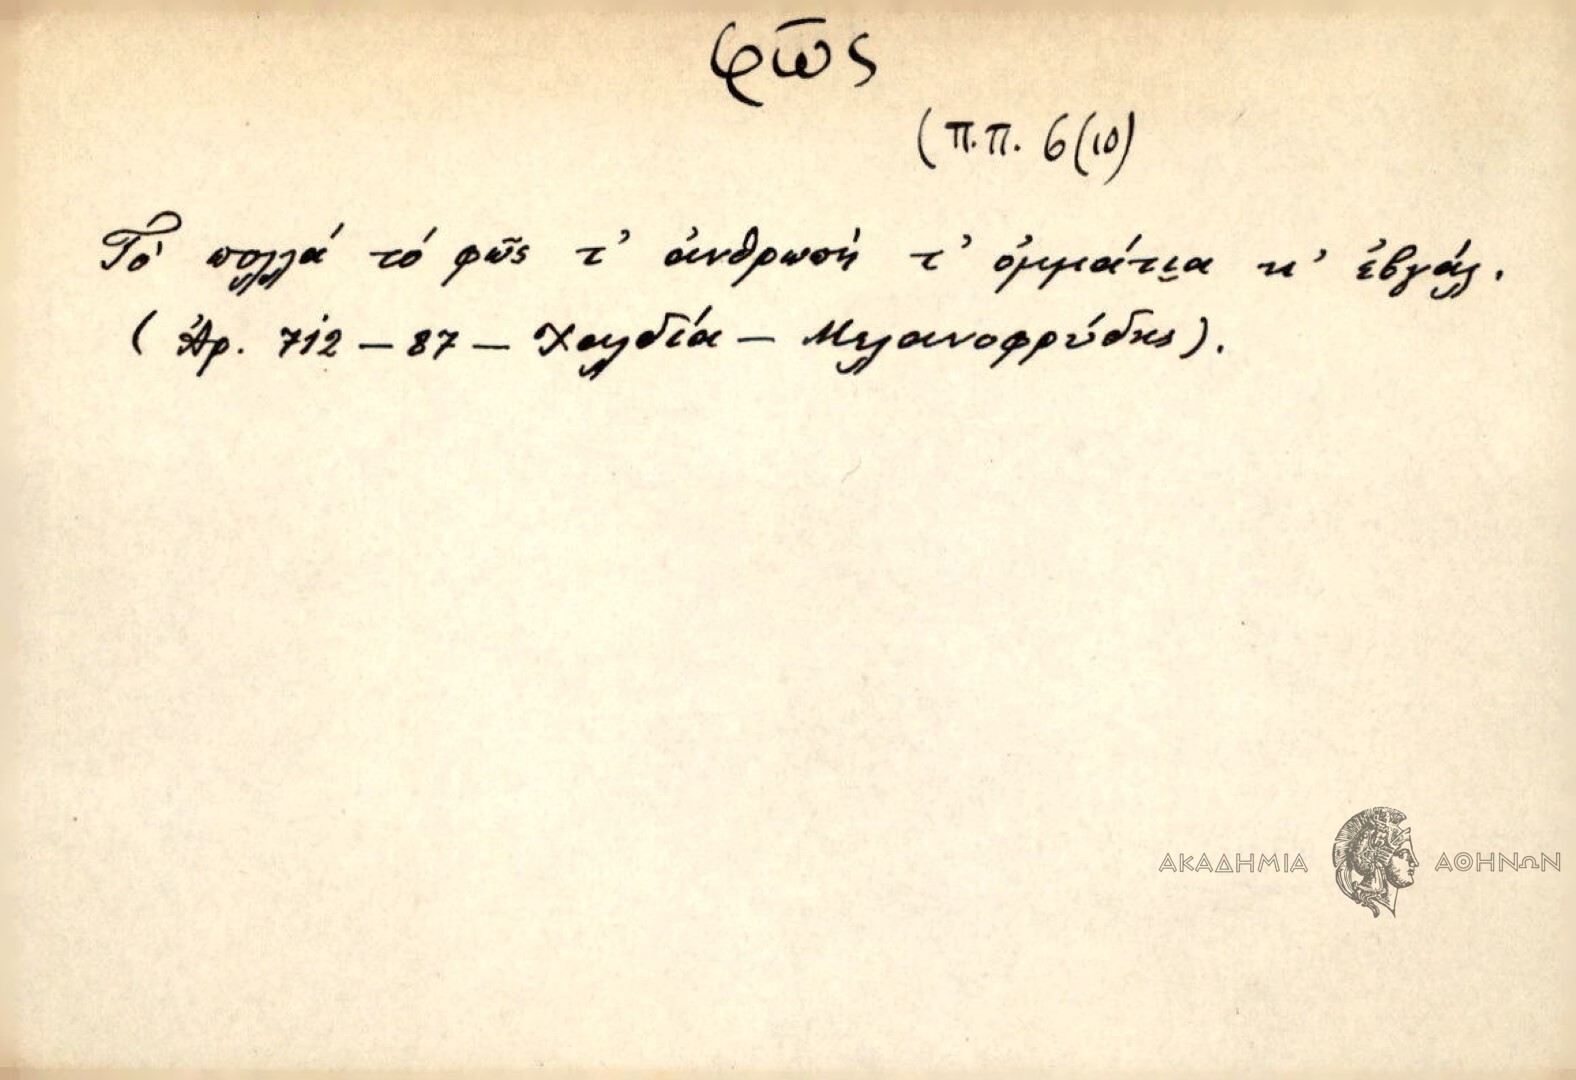 φῶς
(Π.Π. 6(10)
Τό πολλά τό φῶς τ' ἀνθρωπή τ' ὀμμάτι̮α κ' ἐβγάλ.
(Ἀρ. 712 – 87 – Χαλδία – Μελανοφρύδης).
ΑΚΑΔΗΜΙΑ ΑΘΗΝΩΝ